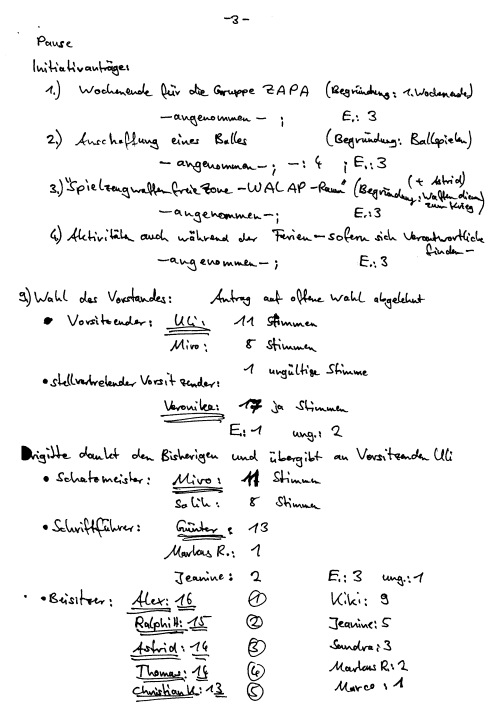 -3-
Pause
Initiativanträge
1.) Wochenende für die Gruppe ZAPA (Begründung: 1. Wochenende)
- angenommen - ; E.: 3
2.) Anschaffung eines Balles (Begründung: Ballspielen)
- angenommen - ; - : 4 ; E.: 3
3.) "Spielzeugwaffenfreie Zone - WALAP - Raum" (Begründung: Waffen dienen zum Krieg) (+ Astrid)
- angenommen - ; E.: 3
4.) Aktivitäten auch während der Ferien - sofern sich Verantwortliche finden -
- angenommen - ; E.: 3
9.) Wahl des Vorstandes: Antrag auf offene Wahl abgelehnt
• Vorsitzender: Uli: 11 Stimmen
Miro: 8 Stimmen
1 ungültige Stimme
• stellvertretender Vorsitzender:
Veronika: 17 ja Stimmen
E.: 1 ung.: 2
Brigitte dankt den Bisherigen und übergibt an Vorsitzenden Uli
• Schatzmeister: Miro: 11 Stimmen
Salih: 8 Stimmen
• Schriftführer: Günter: 13
Markus R.: 1
Jeanine: 2 E.: 3 ung.: 1
• Beisitzer: Alex: 16 ① Kiki: 9
Ralph H: 15 ② Jeanine: 5
Astrid: 14 ③ Sandra: 3
Thomas: 14 ④ Markus R: 2
Christian K: 13 ⑤ Marco: 1